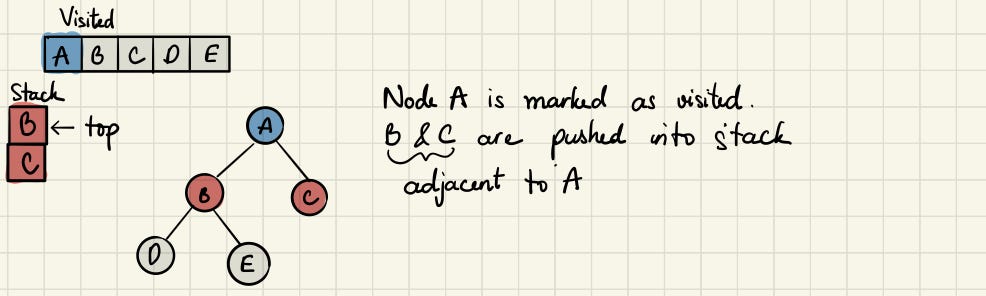 Visited
A B C D E
Stack
B ← top
C
A
B C
D E
Node A is marked as visited.
B & C are pushed into stack
adjacent to A